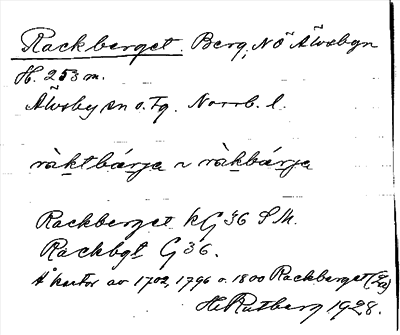 Rackberget. Berg, NÖ Älvsbyn
H. 253 m.
Älvsby sn o. Tg. Norrb. l.
ràktbárja ~ ràkbárja
Rackberget kG 36 S M.
Rackbgt G 36.
Å kartor av 1702, 1796 o. 1800 Rackberget
H. Rutberg 1928.